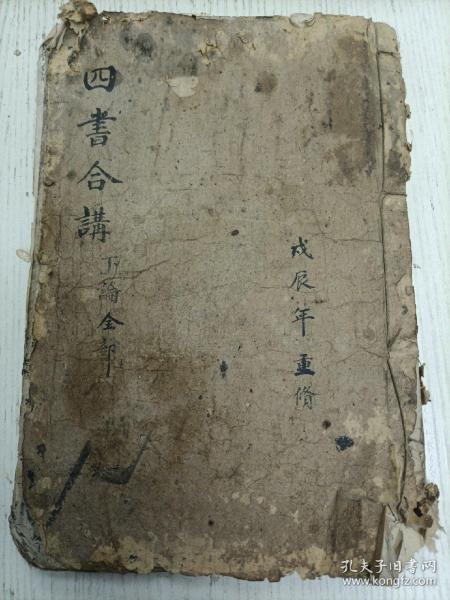 四書合講
下論全部
戊辰年重脩
孔夫子旧书网
www.kongfz.com